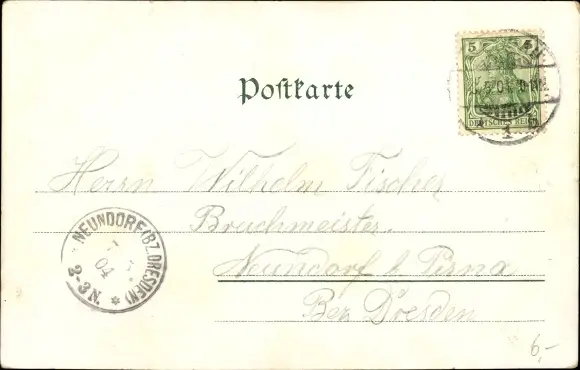 Postkarte
5
DEUTSCHES REICH
Herrn Wilhelm Fischer
Bruchmeister
Neundorf b Pirna
Bez. Dresden
NEUNDORF (BZ. DRESDEN)
04
2-3N.
6,-